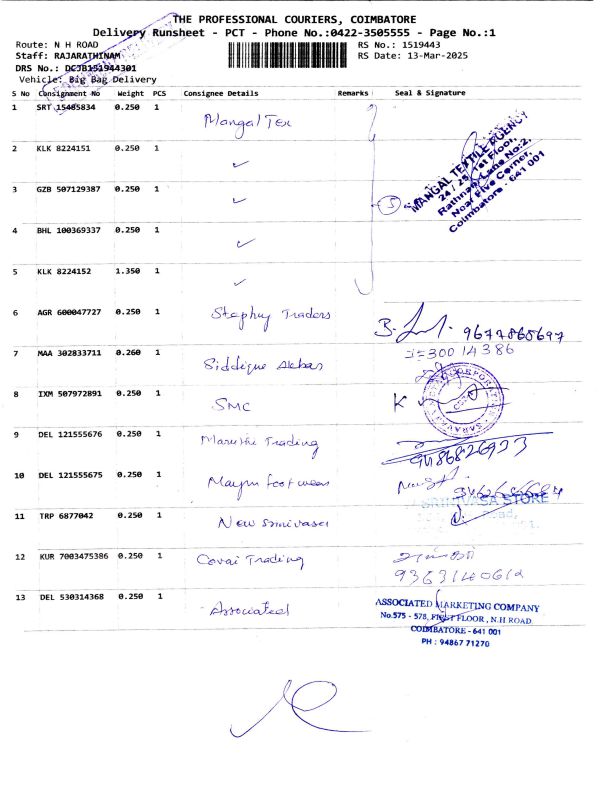 THE PROFESSIONAL COURIERS, COIMBATORE
Delivery Runsheet - PCT - Phone No.:0422-3505555 - Page No.:1
Route: N H ROAD RS No.: 1519443
Staff: RAJARATHINAM RS Date: 13-Mar-2025
DRS No.: DCJB151944301
Vehicle: Big Bag Delivery
S No Consignment No Weight PCS Consignee Details Remarks Seal & Signature
1 SRT 15485834 0.250 1 Mangal Tex
MANGAL TEXTILE AGENCY
24 / 25, 1st Floor,
Rathna Lane No:2,
Near Five Corner,
Coimbatore - 641 001
2 KLK 8224151 0.250 1 ✓
3 GZB 507129387 0.250 1 ✓
5
4 BHL 100369337 0.250 1 ✓
5 KLK 8224152 1.350 1 ✓
6 AGR 600047727 0.250 1 Stephy Traders
7 MAA 302833711 0.260 1 Siddique Akbar
8 IXM 507972891 0.250 1 SMC K
9 DEL 121555676 0.250 1 Maruthi Trading
9486826933
10 DEL 121555675 0.250 1 Maym foot wear
11 TRP 6877042 0.250 1 New Srinivasa
SRINIVASA STORE
12 KUR 7003475386 0.250 1 Covai Trading
9363140612
13 DEL 530314368 0.250 1 Associated
ASSOCIATED MARKETING COMPANY
No.575 - 578, FIRST FLOOR, N.H ROAD.
COIMBATORE - 641 001
PH : 94867 71270